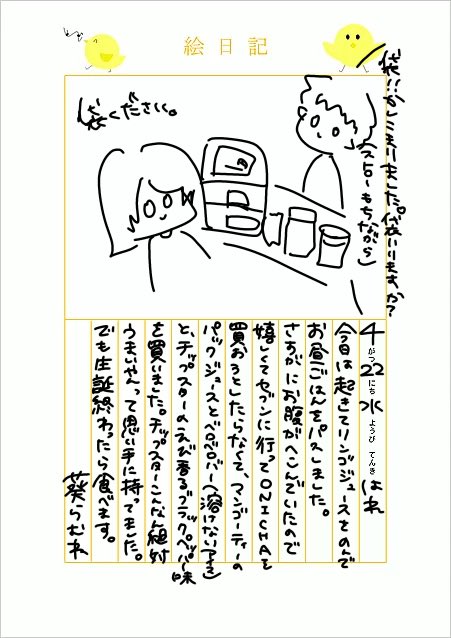 絵日記
袋!!かしこまりました。袋いりますか?
(ストローもちながら)
袋ください。
4がつ22にち水ようび てんき はれ
今日は起きてリンゴジュースをのんで
お昼ごはんをパスしました。
さすがにお腹がへこんでいたので
嬉しくてセブンに行ってONICHAを
買おうとしたらなくて、マンゴーティーの
パックジュースとベロベロバー(溶けないアイス)
と、チップスターのえび香るブラックペッパー味
を買いました。チップスターこんなん絶対
うまいやんって思い手に持ってました。
でも生誕終わったら食べます。
葵らむね